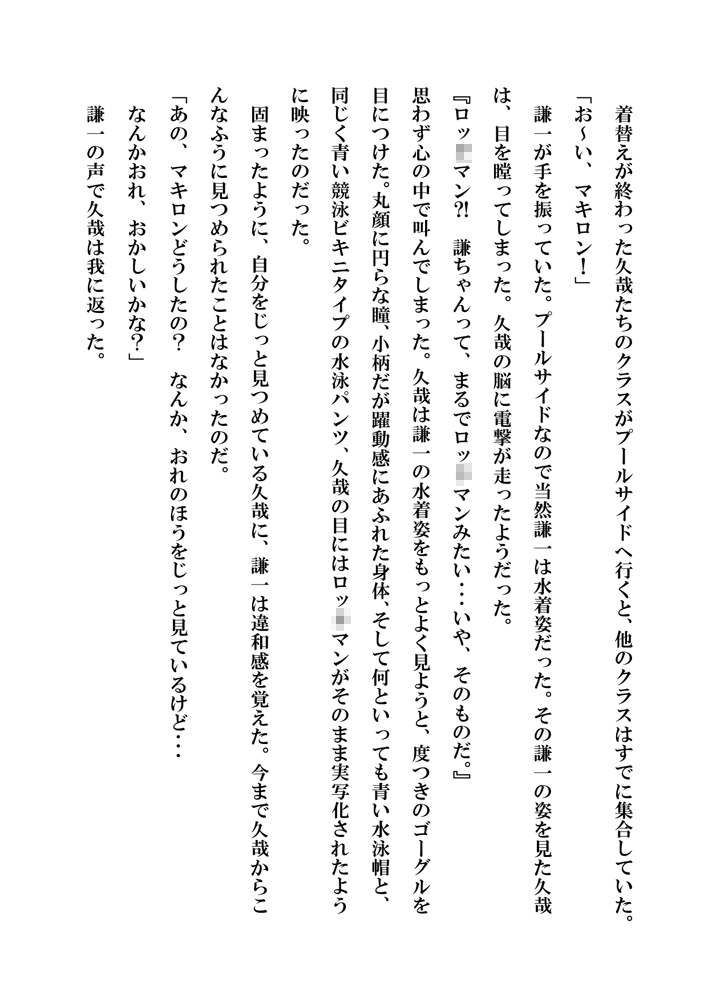 着替えが終わった久哉たちのクラスがプールサイドへ行くと、他のクラスはすでに集合していた。
「お～い、マキロン！」
謙一が手を振っていた。プールサイドなので当然謙一は水着姿だった。その謙一の姿を見た久哉
は、目を瞠ってしまった。久哉の脳に電撃が走ったようだった。
『ロッ マン?!　謙ちゃんって、まるでロッ マンみたい・・・いや、そのものだ。』
思わず心の中で叫んでしまった。久哉は謙一の水着姿をもっとよく見ようと、度つきのゴーグルを
目につけた。丸顔に円らな瞳、小柄だが躍動感にあふれた身体、そして何といっても青い水泳帽と、
同じく青い競泳ビキニタイプの水泳パンツ、久哉の目にはロッ マンがそのまま実写化されたよう
に映ったのだった。
固まったように、自分をじっと見つめている久哉に、謙一は違和感を覚えた。今まで久哉からこ
んなふうに見つめられたことはなかったのだ。
「あの、マキロンどうしたの？　なんか、おれのほうをじっと見ているけど・・・
なんかおれ、おかしいかな？」
謙一の声で久哉は我に返った。